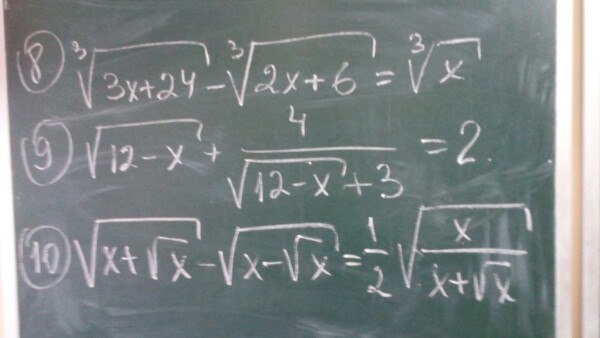 8 ∛(3x+24) - ∛(2x+6) = ∛x
9 √(12-x) + 4/(√(12-x)+3) = 2.
10 √(x+√x) - √(x-√x) = 1/2 √(x/(x+√x))